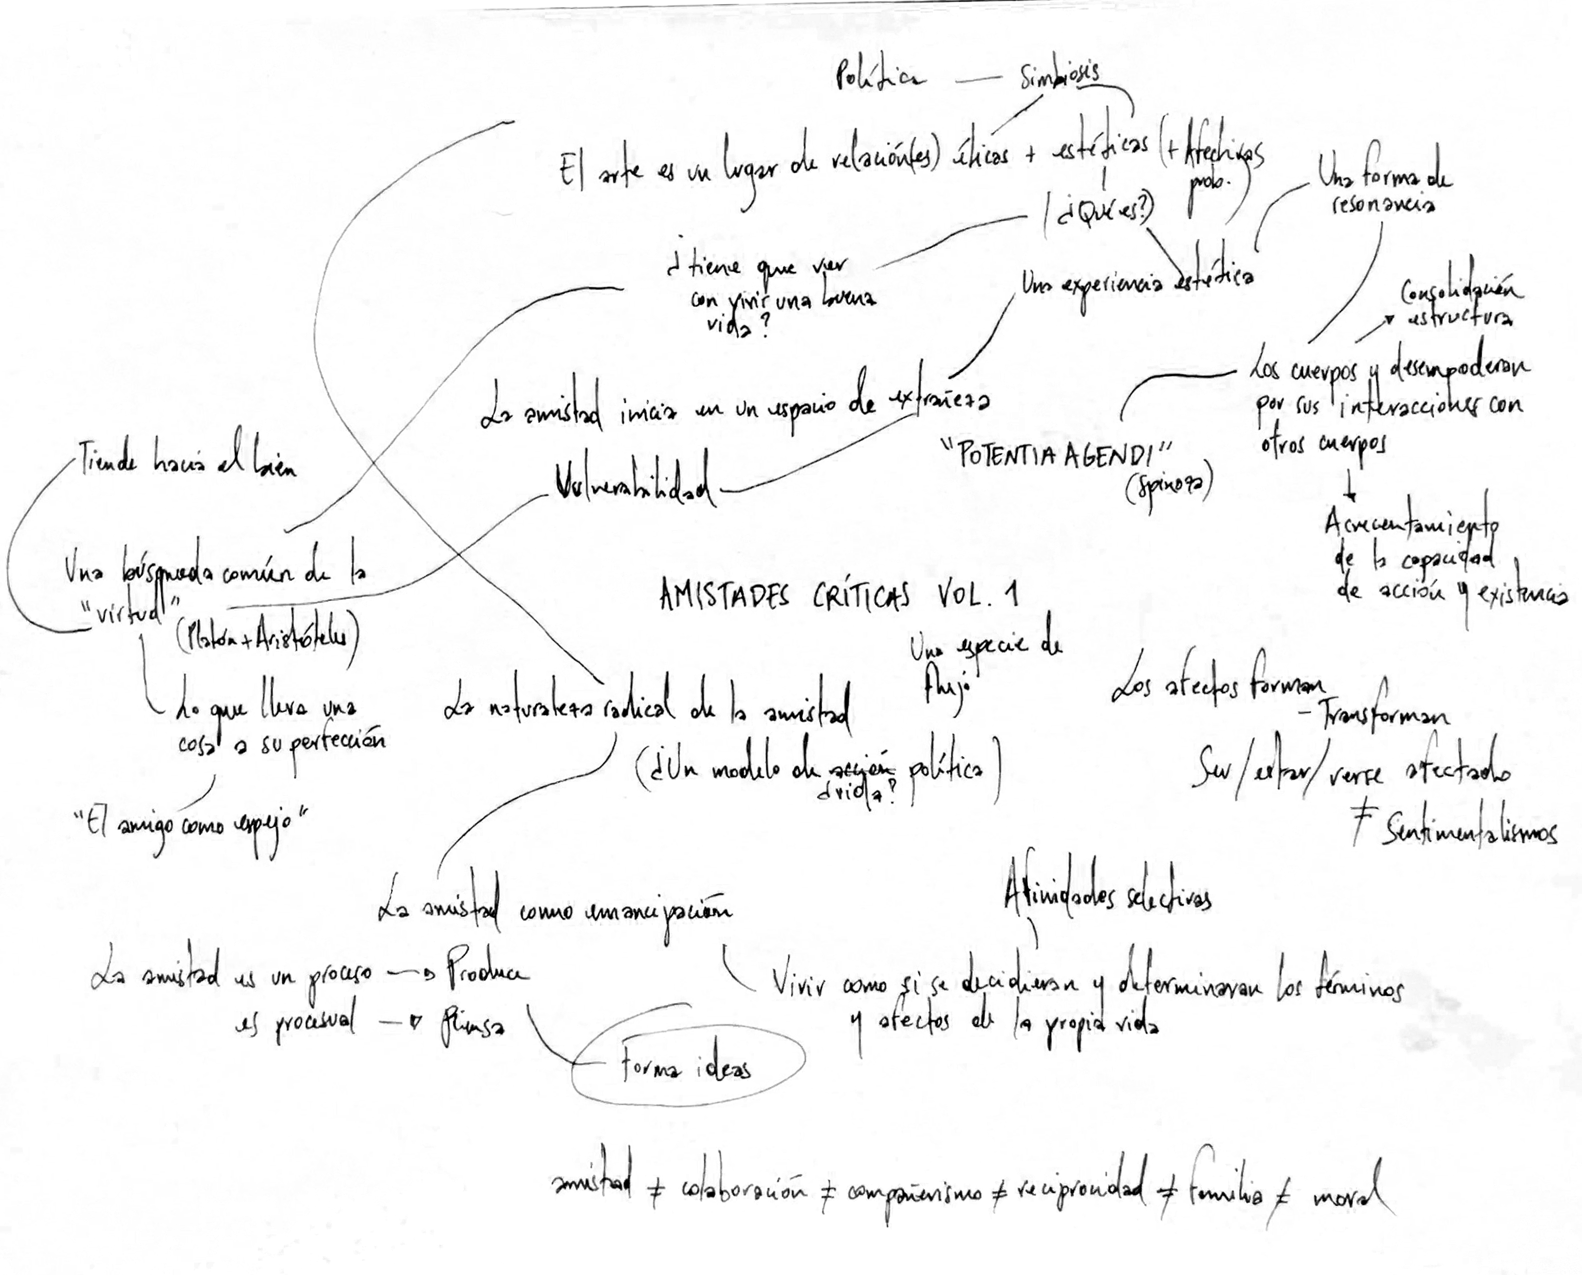 Política — Simbiosis
El arte es un lugar de relación(es) éticas + estéticas (+ Afectivas
prob.)
(¿Qué es?)
Una forma de
resonancia
¿tiene que ver
con vivir una buena
vida?
Una experiencia estética
Consolidación
estructura
Los cuerpos y desempoderan
por sus interacciones con
otros cuerpos
La amistad inicia en un espacio de extrañeza
"POTENTIA AGENDI"
(Spinoza)
Tiende hacia el bien
Vulnerabilidad
Acrecentamiento
de la capacidad
de acción y existencia
Una búsqueda común de la
"virtud"
(Platón + Aristóteles)
AMISTADES CRÍTICAS VOL. 1
Una especie de
flujo
Lo que lleva una
cosa a su perfección
La naturaleza radical de la amistad
(¿Un modelo de acción política)
¿vida?
Los afectos forman
- Transforman
Ser/estar/verse afectado
≠ Sentimentalismos
"El amigo como espejo"
La amistad como emancipación
Afinidades selectivas
La amistad es un proceso → Produce
es procesual → Piensa
Vivir como si se decidieran y determinaran los términos
y afectos de la propia vida
Forma ideas
amistad ≠ colaboración ≠ compañerismo ≠ reciprocidad ≠ familia ≠ moral